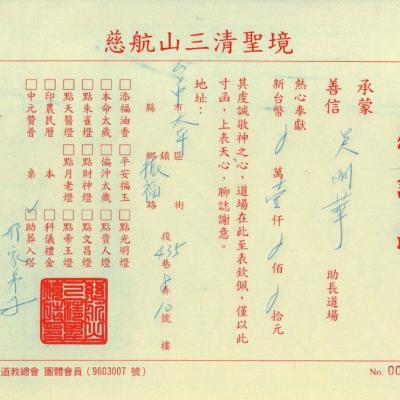 慈航山三清聖境
承蒙
善信 吳 華 助長道場
熱心奉獻
新台幣 0 萬 壹 仟 0 佰 0 拾元
其虔誠敬神之心，道場在此至表欽佩，僅以此
寸函，上表天心，聊誌謝意。
地址： 台中 市 太平 區 街 縣 鎮 鄉 振福 路 段 435 巷 8 弄 10 號 樓
□添福油香 □平安福玉 □點光明燈
□本命太歲 □偏沖太歲 □點貴人燈
□點朱雀燈 □點財神燈 □點文昌燈
□點天醫燈 □點月老燈 □點帝王燈
□印農民曆 本 □科儀禮金
□中元贊普 桌 ☑助葬入塔
道教總會 團體會員（9603007 號）
No. 00